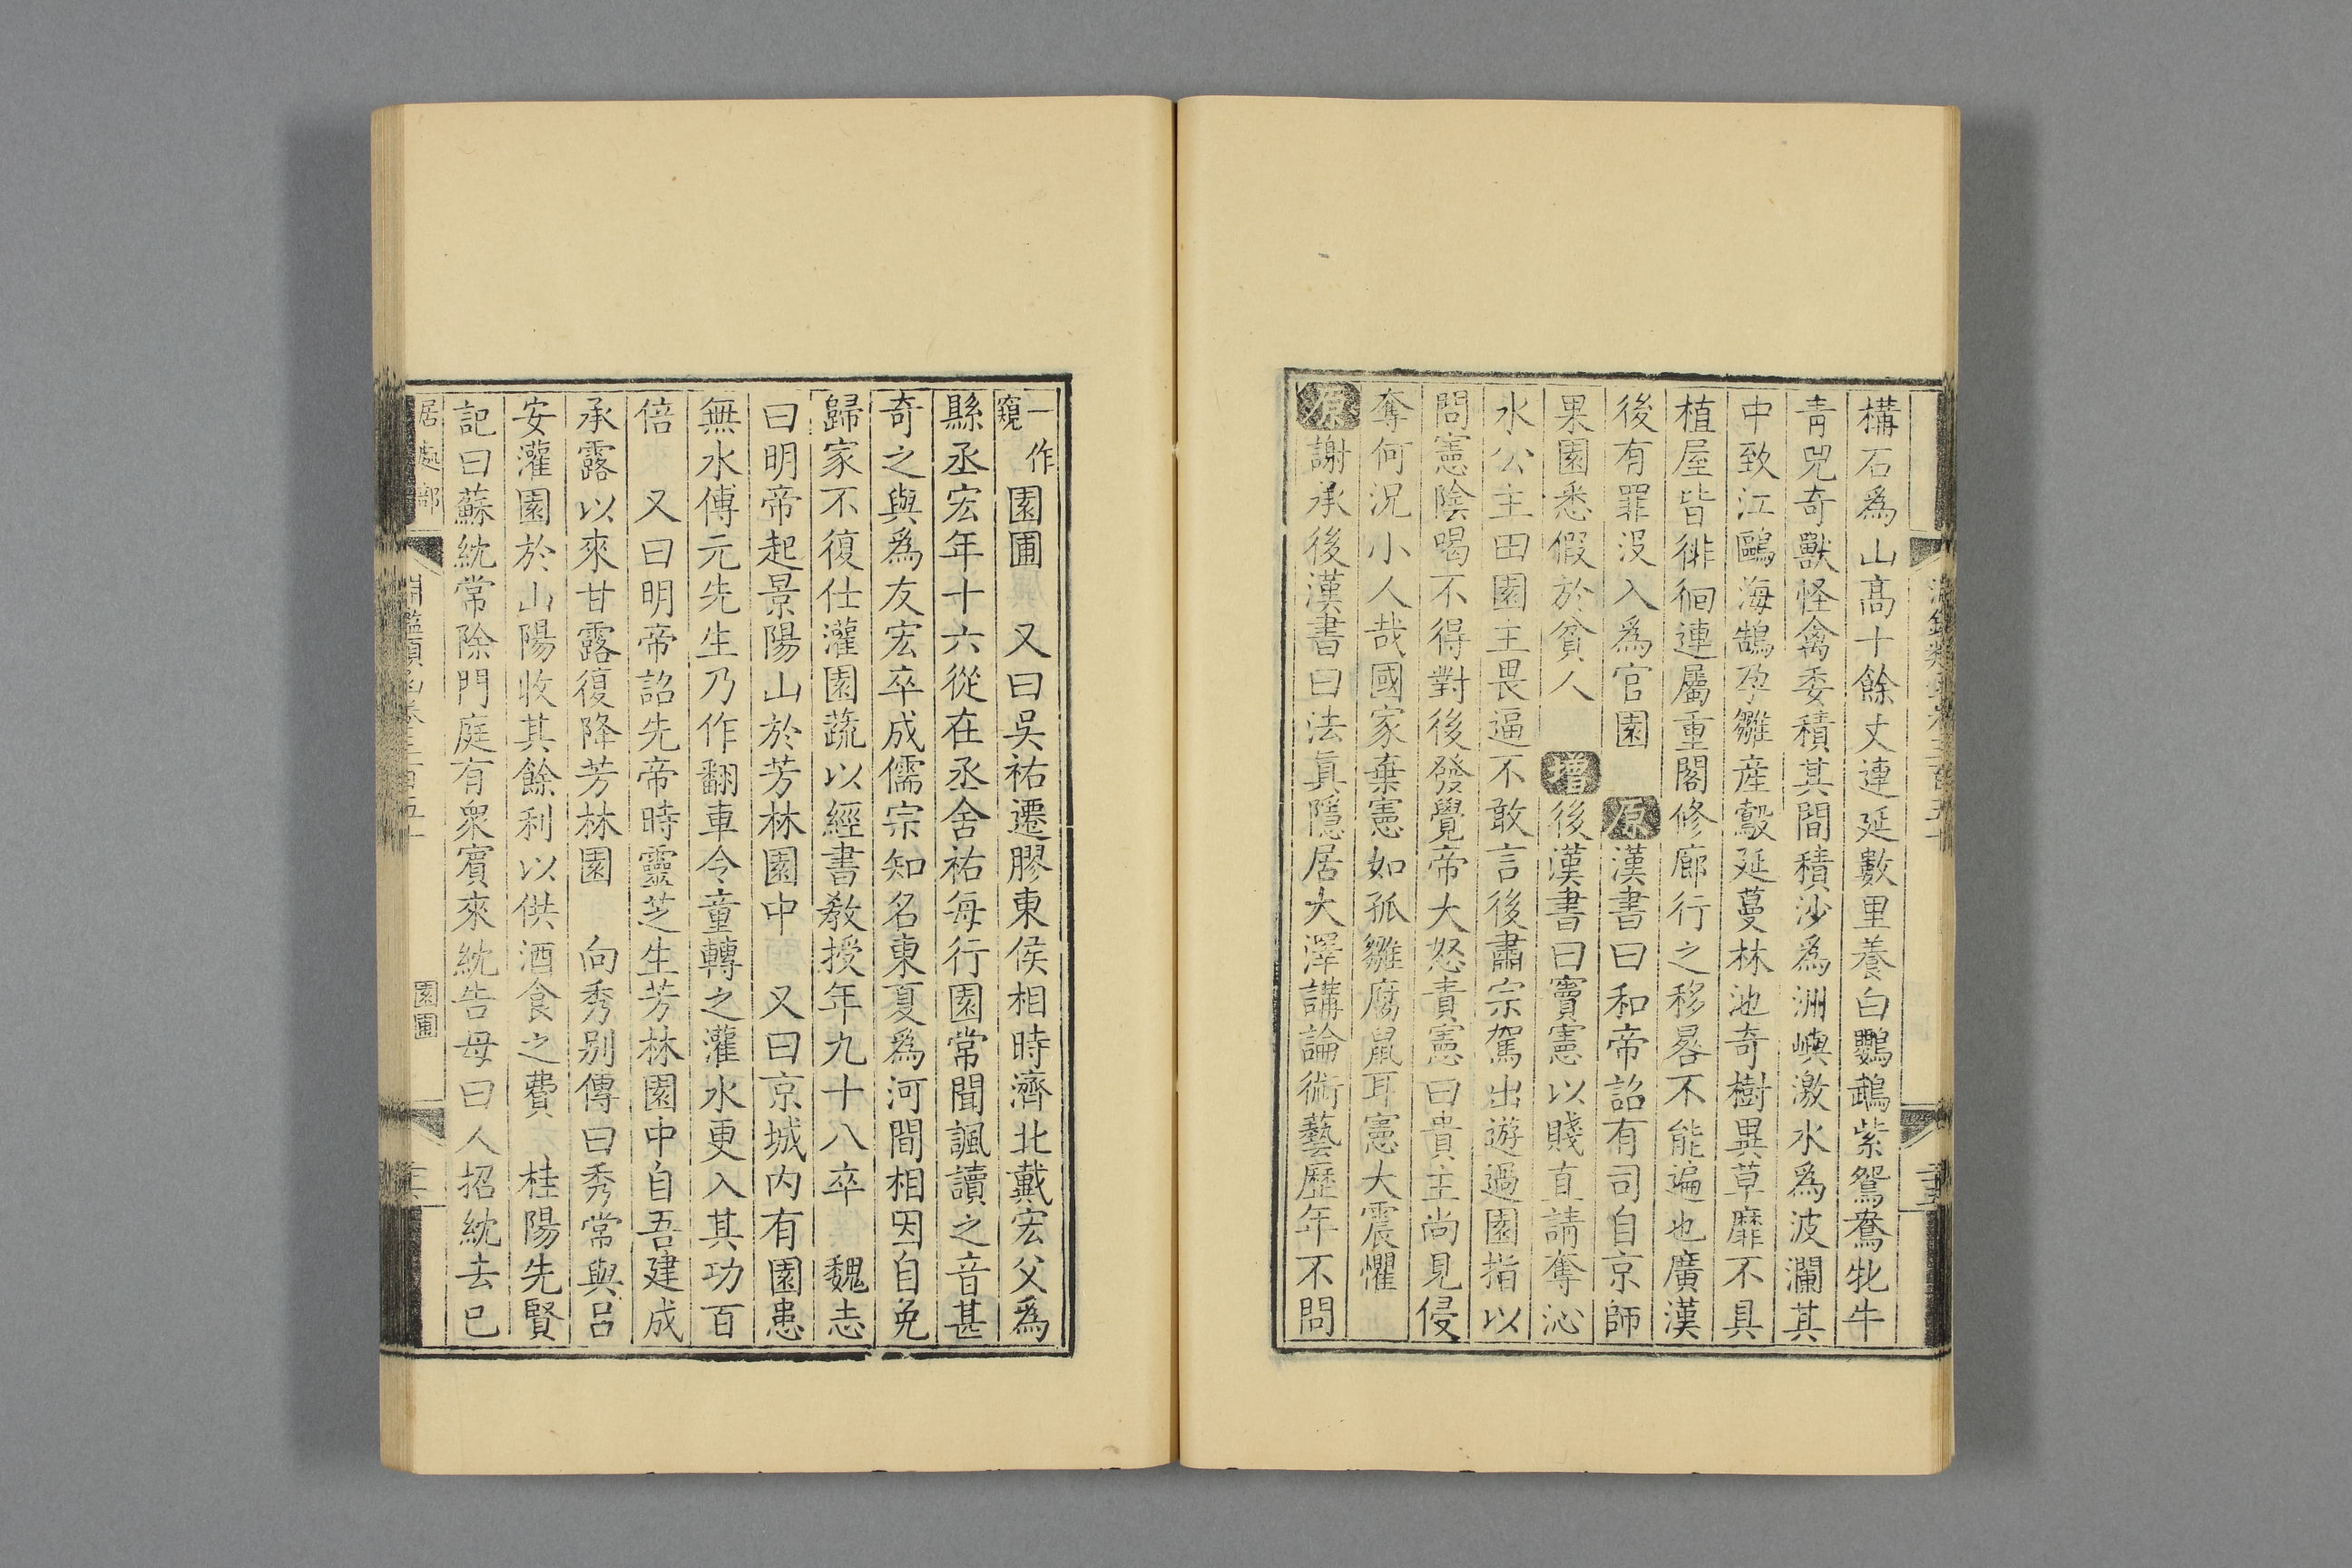 構石爲山高十餘丈連延數里養白鸚鵡紫鴛鴦牝牛
青兕奇獸怪禽委積其間積沙爲洲嶼激水爲波瀾其
中致江鷗海鵠孕雛産鷇延蔓林池奇樹異草靡不具
植屋皆徘徊連屬重閣修廊行之移晷不能遍也廣漢
後有罪没入爲官園　原漢書曰和帝詔有司自京師
果園悉假於貧人　增後漢書曰竇憲以賤直請奪沁
水公主田園主畏逼不敢言後肅宗駕出遊過園指以
問憲陰喝不得對後發覺帝大怒責憲曰貴主尚見侵
奪何況小人哉國家棄憲如孤雛腐鼠耳憲大震懼
原謝承後漢書曰法眞隱居大澤講論術藝歷年不問
一作窺園圃　又曰吳祐遷膠東侯相時濟北戴宏父爲
縣丞宏年十六從在丞舍祐每行園常聞諷讀之音甚
奇之與爲友宏卒成儒宗知名東夏爲河間相因自免
歸家不復仕灌園蔬以經書教授年九十八卒　魏志
曰明帝起景陽山於芳林園中　又曰京城内有園患
無水傅元先生乃作翻車令童轉之灌水更入其功百
倍　又曰明帝詔先帝時靈芝生芳林園中自吾建成
承露以來甘露復降芳林園　向秀别傳曰秀常與吕
安灌園於山陽收其餘利以供酒食之費　桂陽先賢
記曰蘇統常除門庭有衆賓來統告母曰人招統去已
居處部
園圃